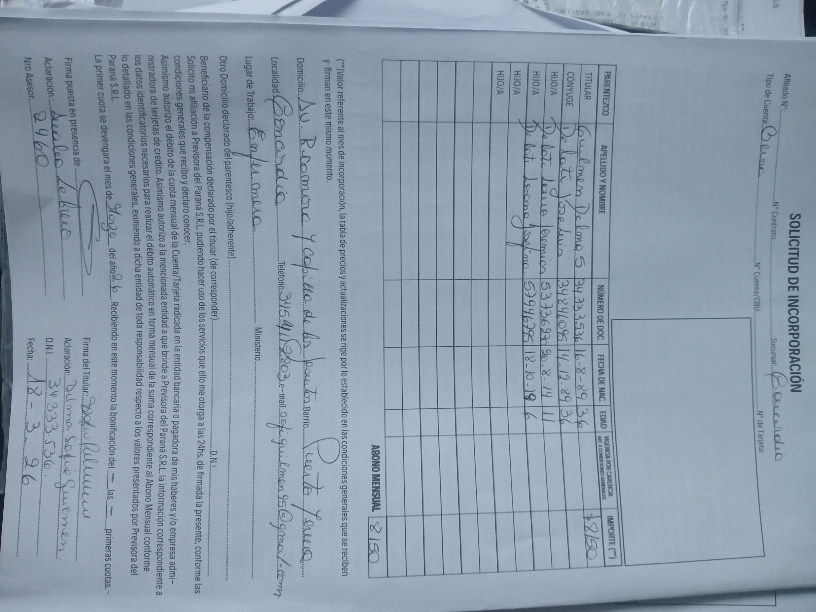 SOLICITUD DE INCORPORACIÓN
Afiliado Nº: Nº Contrato: Nº Cuenta/CBU: Nº de Tarjeta:
Tipo de Cuenta: Sucursal: Concordia
PARENTEZCO APELLIDO Y NOMBRE NÚMERO DE DOC. FECHA DE NAC. EDAD VIGENCIA POR CARENCIA IMPORTE (**)
TITULAR Delma S 34333536 16-8-89 36 $8150
CONYUGE Jose Luis 14-12-89 36
HIJO/A 20-8-14 11
HIJO/A 18-10-19 6
HIJO/A
HIJO/A
ABONO MENSUAL 8150
(**)Valor referente al mes de incorporación, la tabla de precios y actualizaciones se rige por lo establecido en las condiciones generales que se reciben
y firman en este mismo momento.
Domicilio: Av. y capilla de los Barrio: Puerto
Localidad: Concordia Teléfono: e-mail:
Lugar de Trabajo: Enfermera Ministerio:
Otro Domicilio declarado del parentesco (hijo/adherente)
Beneficiario de la compensación declarado por el titular (de corresponder) D.N.I.
Solicito mi afiliación a Previsora del Paraná S.R.L. pudiendo hacer uso de los servicios que ello me otorga a las 24hs. de firmada la presente, conforme las
condiciones generales que recibo y declaro conocer.
Asimismo autorizo el débito de la cuota mensual de la Cuenta/Tarjeta radicada en la entidad bancaria o pagadora de mis haberes y/o empresa admi-
nistradora de tarjetas de crédito. Asimismo autorizo a la mencionada entidad a que brinde a Previsora del Paraná S.R.L. la información correspondiente a
los datos identificatorios necesarios para realizar el débito automático en forma mensual de la suma correspondiente al Abono Mensual conforme
lo detallado en las condiciones generales, eximiendo a dicha entidad de toda responsabilidad respecto a los valores presentados por Previsora del
Paraná S.R.L.
La primer cuota se devengara el mes de Mayo del año 26 Recibiendo en este momento la bonificación del — las — primeras cuotas.-
Firma puesta en presencia de Firma del Titular:
Aclaración: Aclaración: Delma Sofia
D.N.I. 34333536
Nro Asesor: 2460 Fecha: 18-3-26